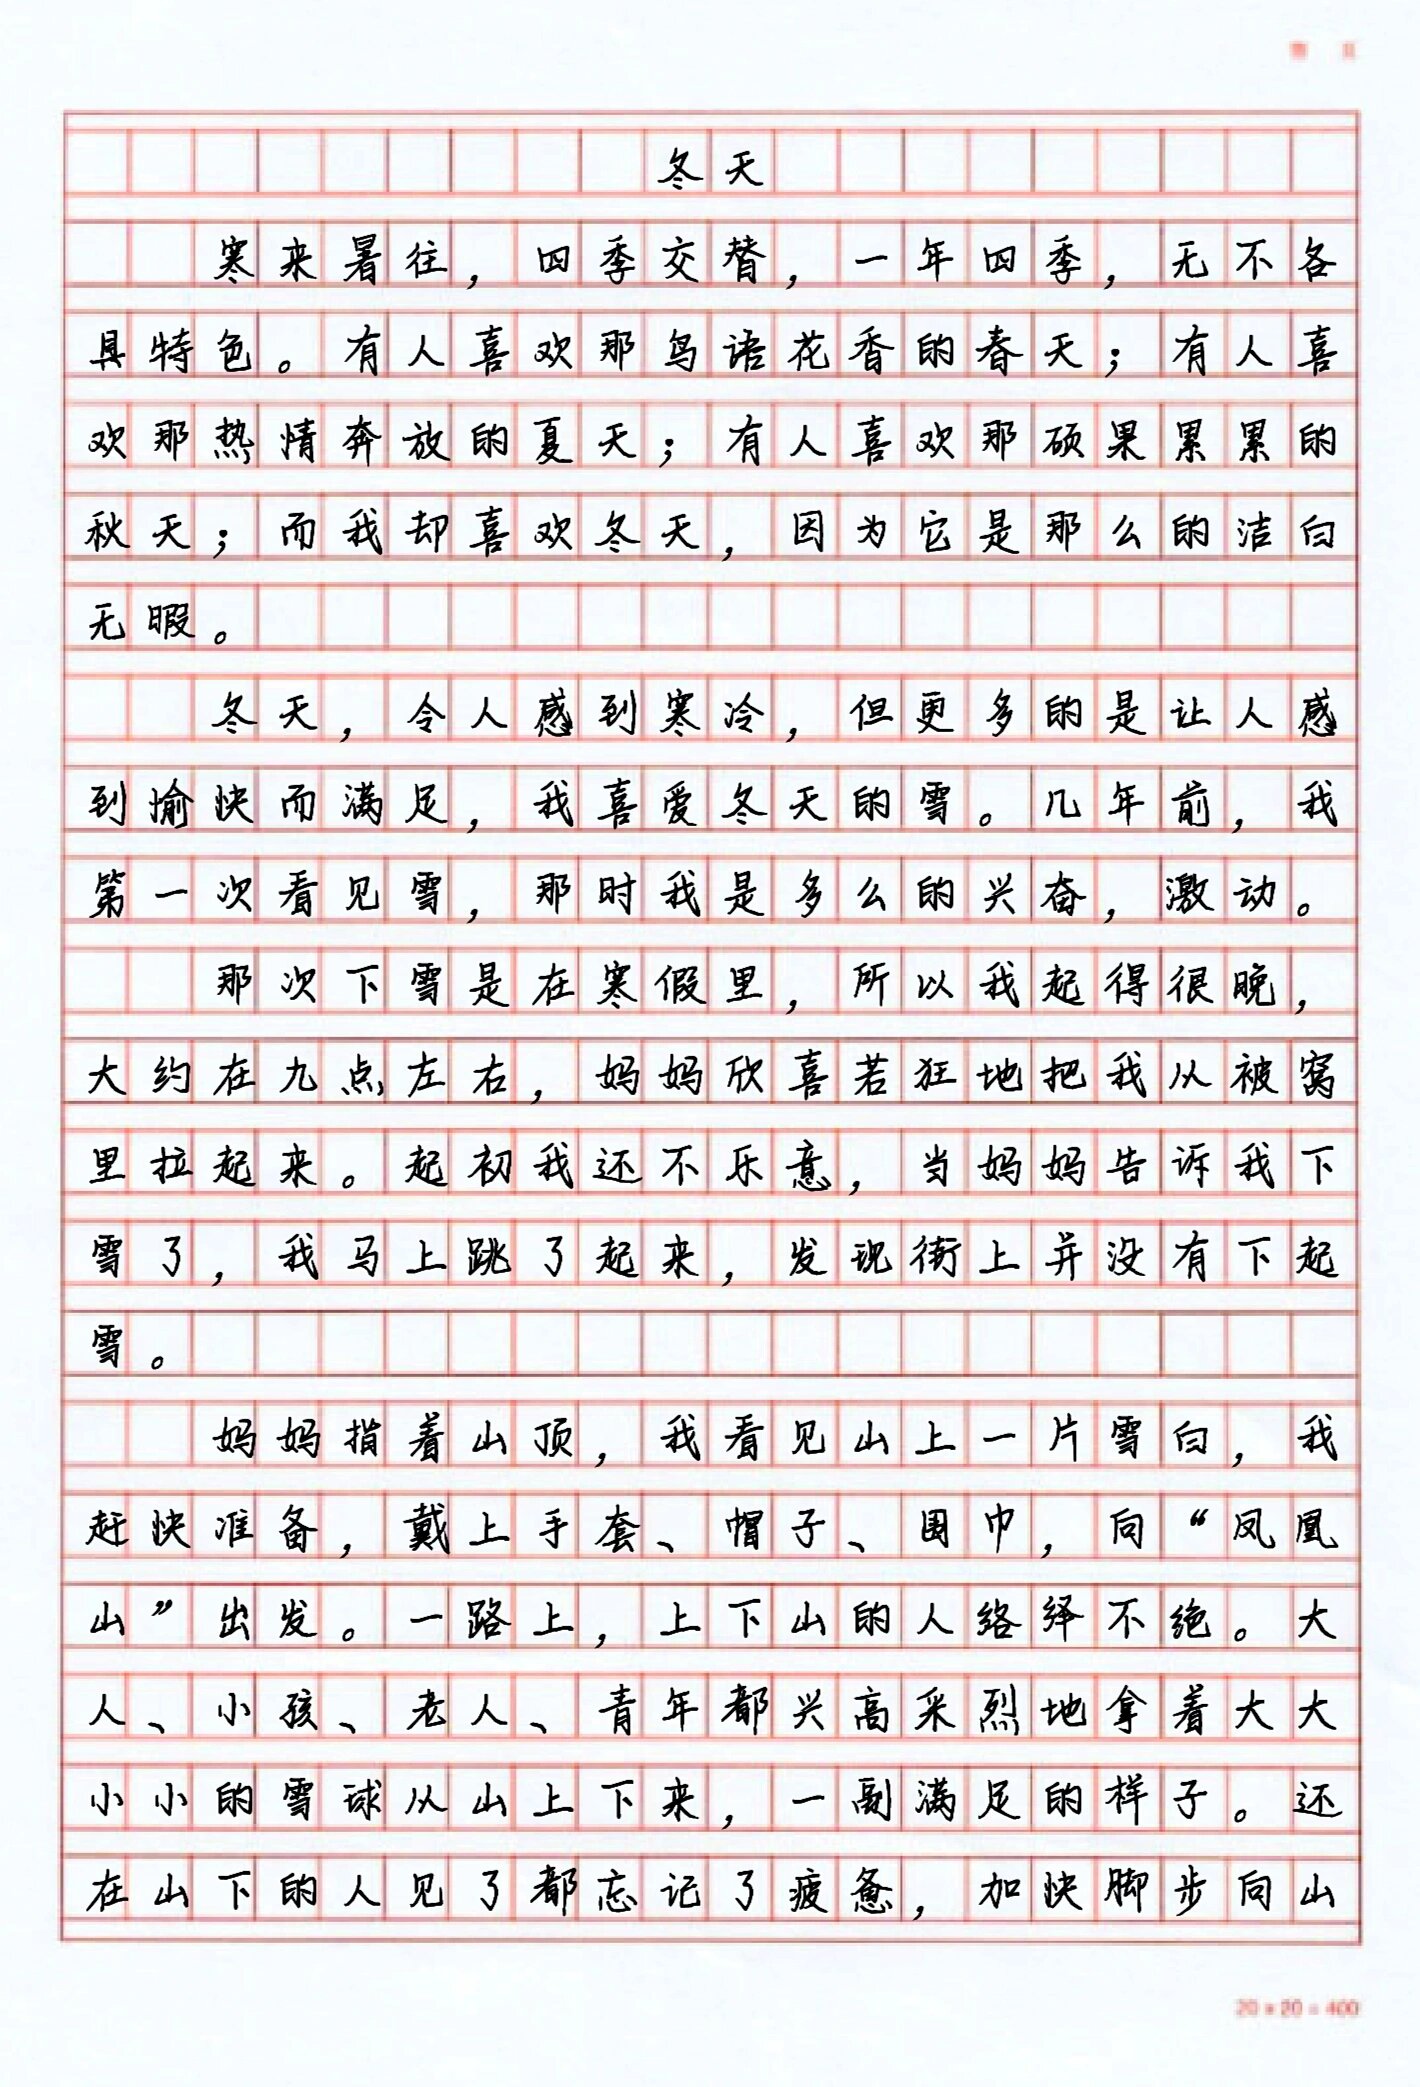 冬天
寒来暑往，四季交替，一年四季，无不各
具特色。有人喜欢那鸟语花香的春天；有人喜
欢那热情奔放的夏天；有人喜欢那硕果累累的
秋天；而我却喜欢冬天，因为它是那么的洁白
无暇。
冬天，令人感到寒冷，但更多的是让人感
到愉快而满足，我喜爱冬天的雪。几年前，我
第一次看见雪，那时我是多么的兴奋，激动。
那次下雪是在寒假里，所以我起得很晚，
大约在九点左右，妈妈欣喜若狂地把我从被窝
里拉起来。起初我还不乐意，当妈妈告诉我下
雪了，我马上跳了起来，发现街上并没有下起
雪。
妈妈指着山顶，我看见山上一片雪白，我
赶快准备，戴上手套、帽子、围巾，向“凤凰
山”出发。一路上，上下山的人络绎不绝。大
人、小孩、老人、青年都兴高采烈地拿着大大
小小的雪球从山上下来，一副满足的样子。还
在山下的人见了都忘记了疲惫，加快脚步向山
20×20=400